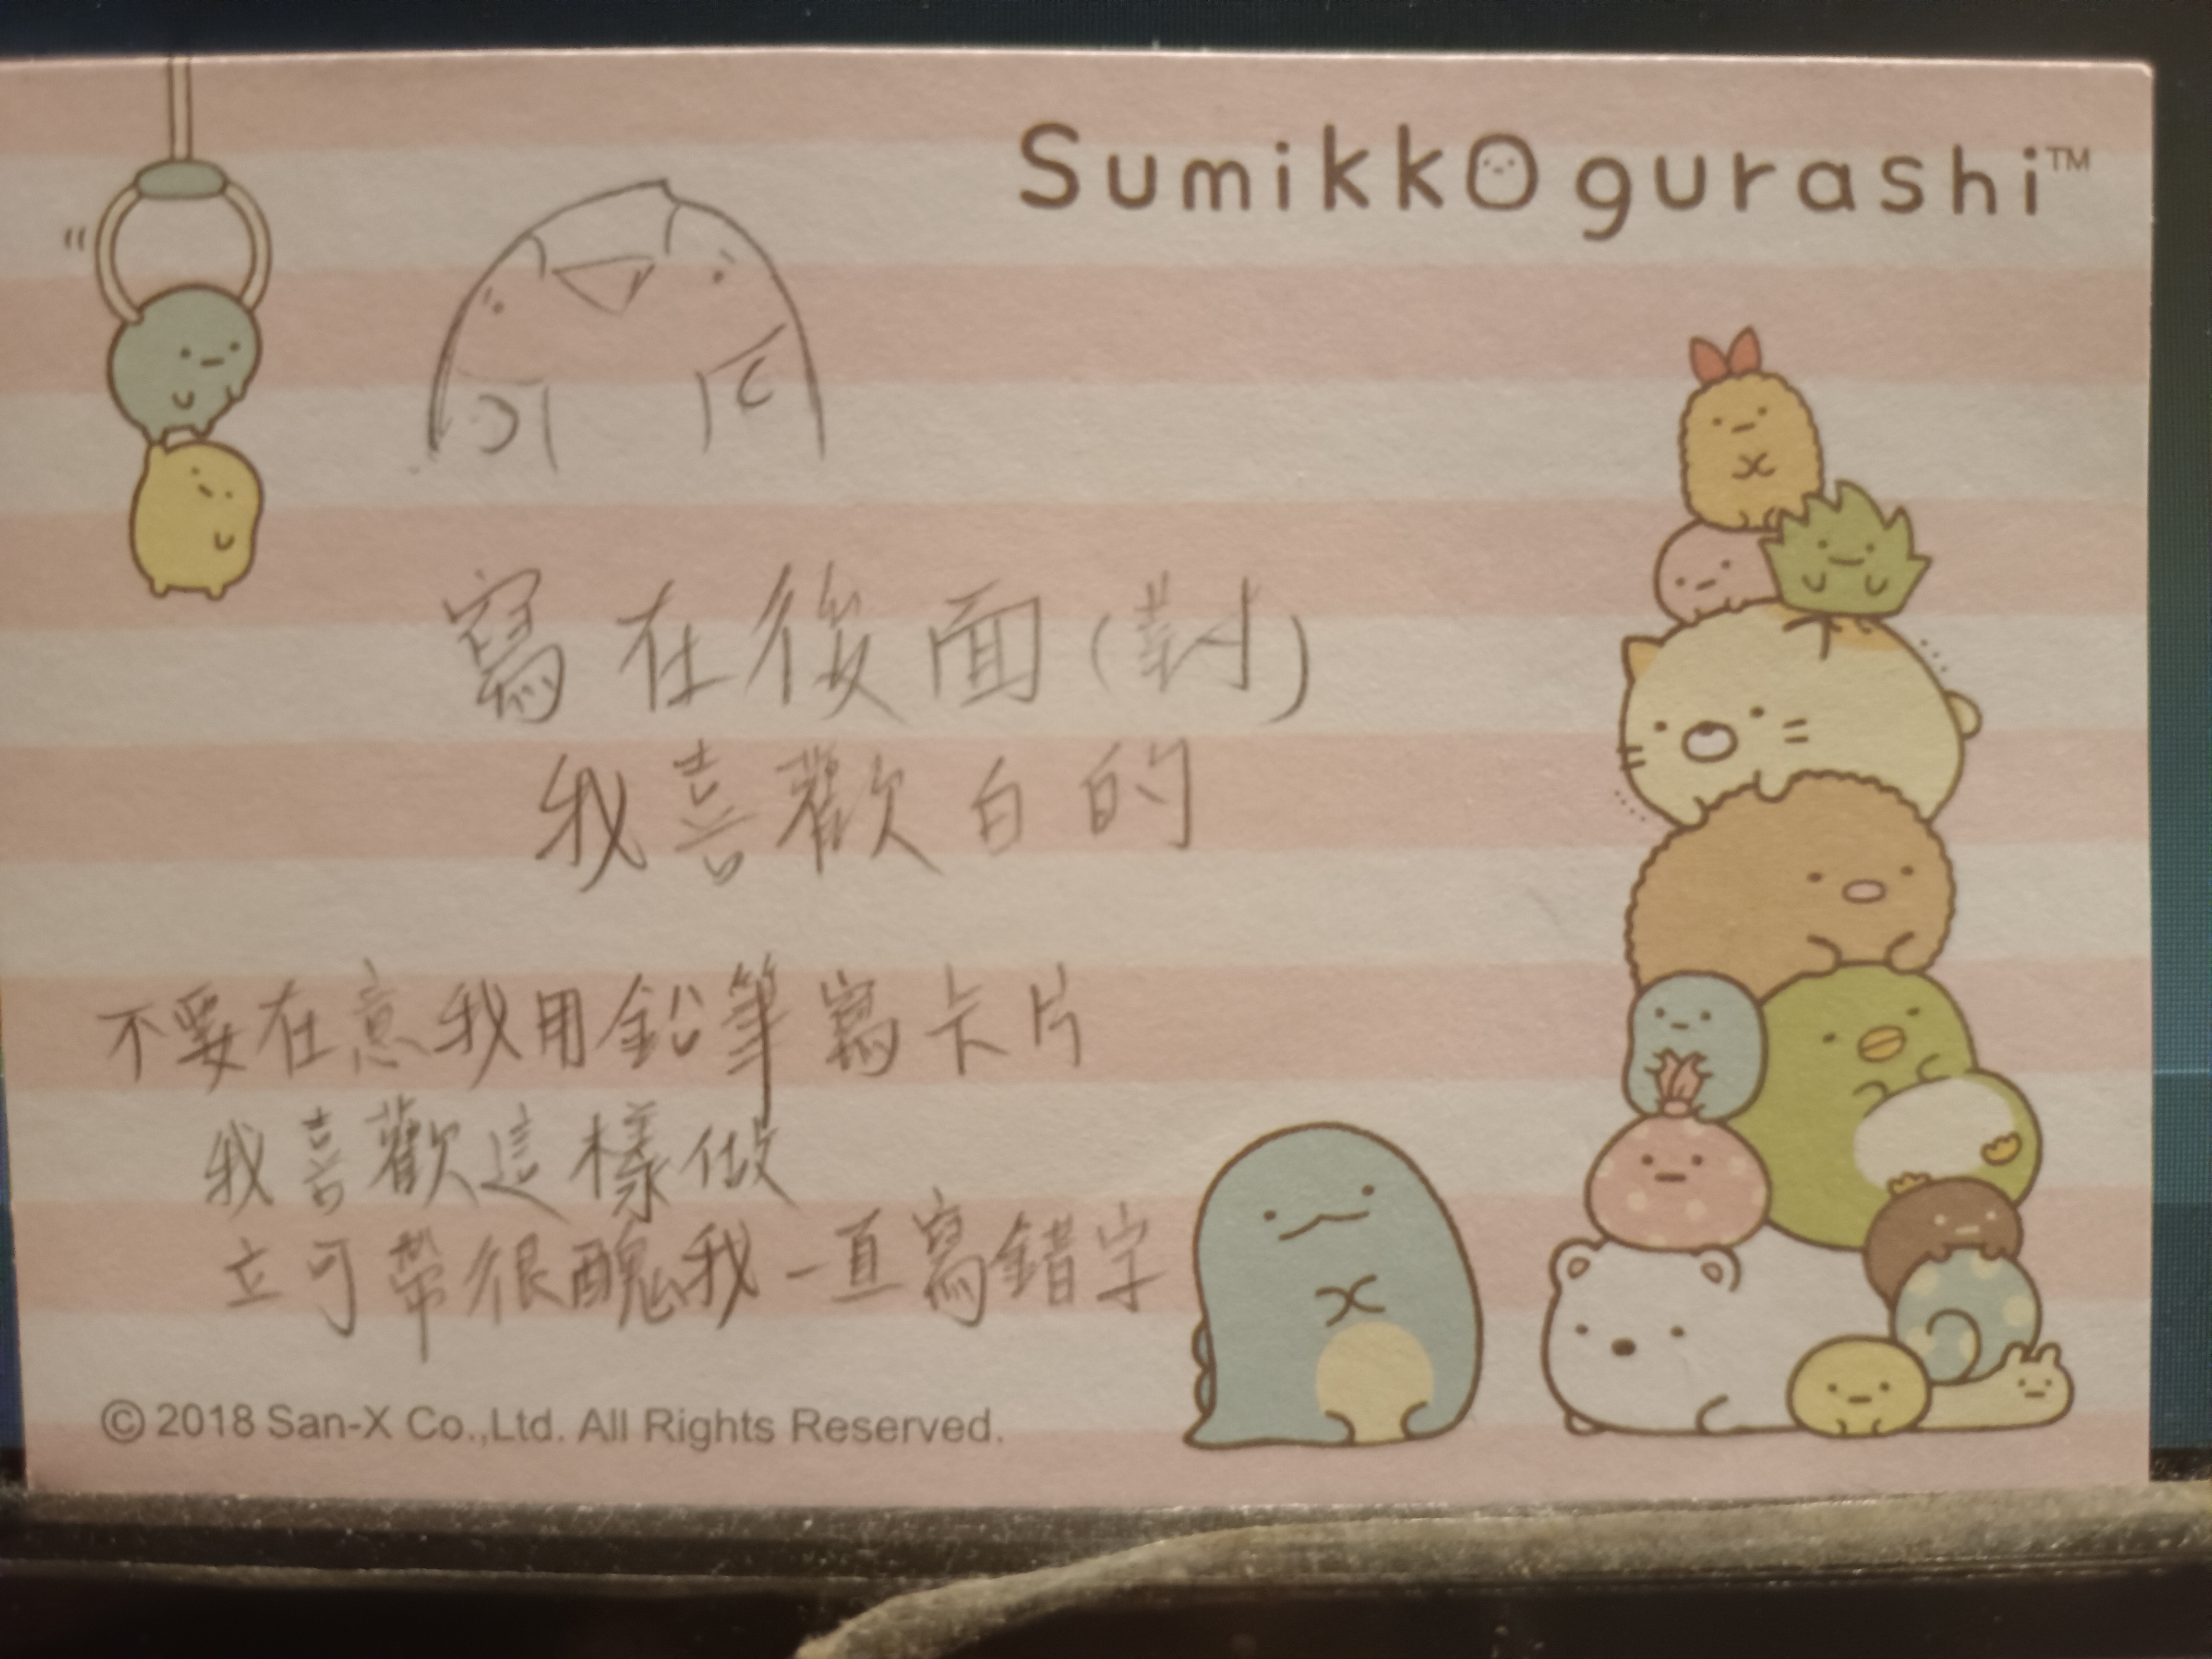 Sumikko gurashi™
寫在後面(對)
我喜歡白的
不要在意我用鉛筆寫卡片
我喜歡這樣做
立可帶很醜我一直寫錯字
© 2018 San-X Co.,Ltd. All Rights Reserved.